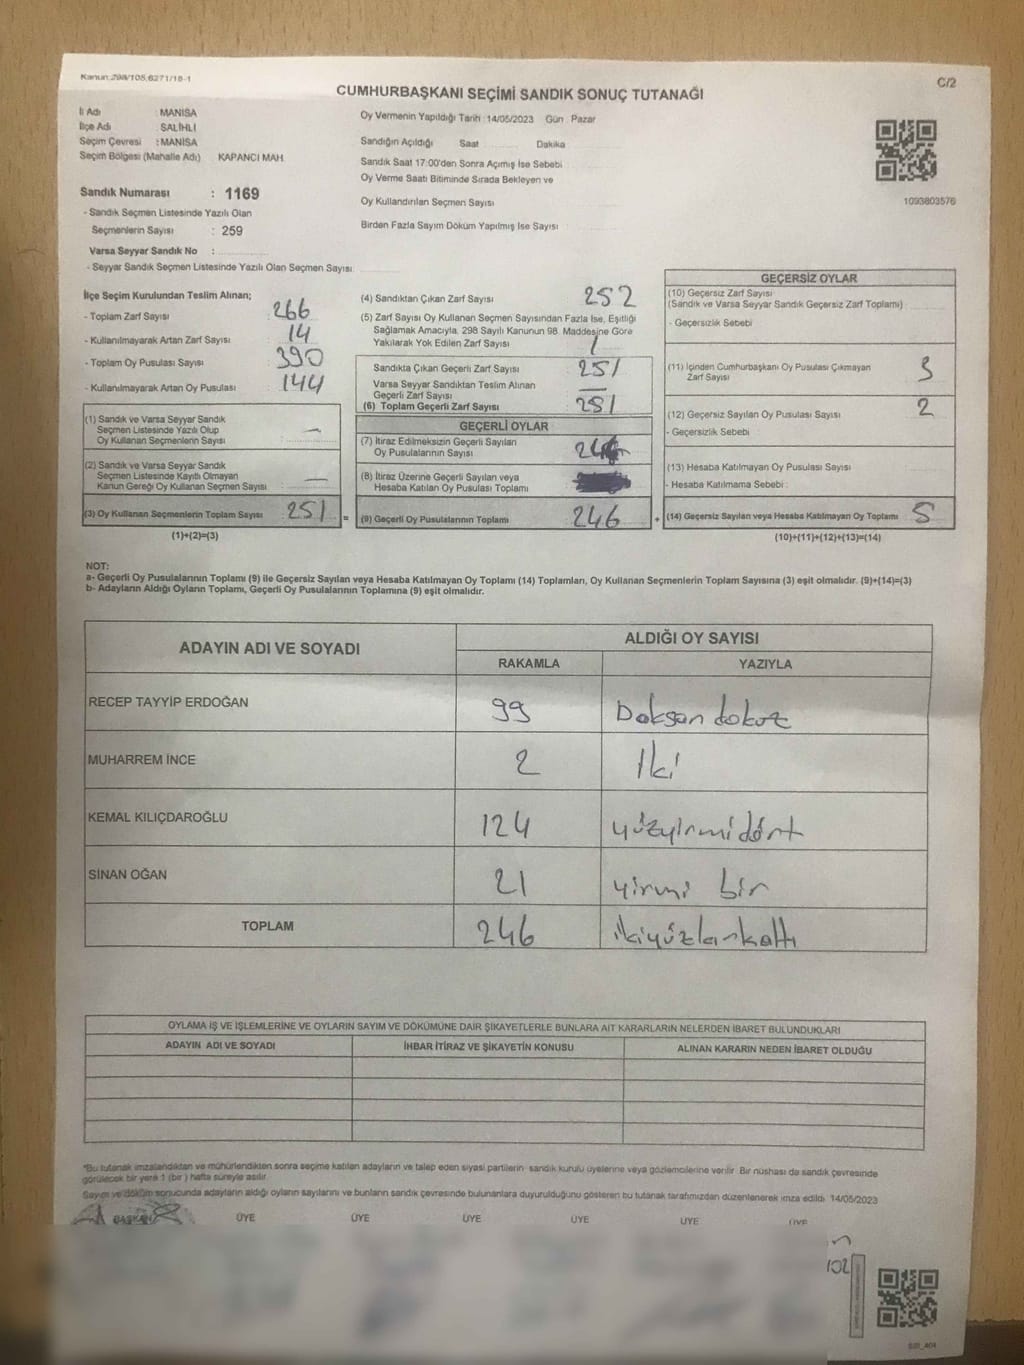 Kanun:298/105,6271/18-1
C/2
CUMHURBAŞKANI SEÇİMİ SANDIK SONUÇ TUTANAĞI
İl Adı : MANİSA
İlçe Adı : SALİHLİ
Seçim Çevresi : MANİSA
Seçim Bölgesi (Mahalle Adı) KAPANCI MAH.
Sandık Numarası : 1169
- Sandık Seçmen Listesinde Yazılı Olan
Seçmenlerin Sayısı : 259
Varsa Seyyar Sandık No :
- Seyyar Sandık Seçmen Listesinde Yazılı Olan Seçmen Sayısı:
Oy Vermenin Yapıldığı Tarih : 14/05/2023 Gün : Pazar
Sandığın Açıldığı Saat Dakika
Sandık Saat 17:00'den Sonra Açmış İse Sebebi
Oy Verme Saati Bitiminde Sırada Bekleyen ve
Oy Kullandırılan Seçmen Sayısı
Birden Fazla Sayım Döküm Yapılmış İse Sayısı
1093803576
İlçe Seçim Kurulundan Teslim Alınan;
- Toplam Zarf Sayısı : 266
- Kullanılmayarak Artan Zarf Sayısı : 14
- Toplam Oy Pusulası Sayısı : 390
- Kullanılmayarak Artan Oy Pusulası : 144
(1) Sandık ve Varsa Seyyar Sandık
Seçmen Listesinde Yazılı Olup
Oy Kullanan Seçmenlerin Sayısı : —
(2) Sandık ve Varsa Seyyar Sandık
Seçmen Listesinde Kayıtlı Olmayan
Kanun Gereği Oy Kullanan Seçmen Sayısı : —
(3) Oy Kullanan Seçmenlerin Toplam Sayısı : 251
(1)+(2)=(3)
(4) Sandıktan Çıkan Zarf Sayısı 252
(5) Zarf Sayısı Oy Kullanan Seçmen Sayısından Fazla İse, Eşitliği
Sağlamak Amacıyla, 298 Sayılı Kanunun 98. Maddesine Göre
Yakılarak Yok Edilen Zarf Sayısı 1
Sandıkta Çıkan Geçerli Zarf Sayısı 251
Varsa Seyyar Sandıktan Teslim Alınan
Geçerli Zarf Sayısı —
(6) Toplam Geçerli Zarf Sayısı 251
GEÇERLİ OYLAR
(7) İtiraz Edilmeksizin Geçerli Sayılan
Oy Pusulalarının Sayısı 246
(8) İtiraz Üzerine Geçerli Sayılan veya
Hesaba Katılan Oy Pusulası Toplamı
= (9) Geçerli Oy Pusulalarının Toplamı 246
GEÇERSİZ OYLAR
(10) Geçersiz Zarf Sayısı
(Sandık ve Varsa Seyyar Sandık Geçersiz Zarf Toplamı)
- Geçersizlik Sebebi :
(11) İçinden Cumhurbaşkanı Oy Pusulası Çıkmayan
Zarf Sayısı 3
(12) Geçersiz Sayılan Oy Pusulası Sayısı 2
- Geçersizlik Sebebi :
(13) Hesaba Katılmayan Oy Pusulası Sayısı
- Hesaba Katılmama Sebebi :
+ (14) Geçersiz Sayılan veya Hesaba Katılmayan Oy Toplamı 5
(10)+(11)+(12)+(13)=(14)
NOT:
a- Geçerli Oy Pusulalarının Toplamı (9) ile Geçersiz Sayılan veya Hesaba Katılmayan Oy Toplamı (14) Toplamları, Oy Kullanan Seçmenlerin Toplam Sayısına (3) eşit olmalıdır. (9)+(14)=(3)
b- Adayların Aldığı Oyların Toplamı, Geçerli Oy Pusulalarının Toplamına (9) eşit olmalıdır.
ADAYIN ADI VE SOYADI
ALDIĞI OY SAYISI
RAKAMLA YAZIYLA
RECEP TAYYİP ERDOĞAN 99 Doksan dokuz
MUHARREM İNCE 2 İki
KEMAL KILIÇDAROĞLU 124 yüzyirmidört
SİNAN OĞAN 21 yirmi bir
TOPLAM 246 ikiyüzkırkaltı
OYLAMA İŞ VE İŞLEMLERİNE VE OYLARIN SAYIM VE DÖKÜMÜNE DAİR ŞİKAYETLERLE BUNLARA AİT KARARLARIN NELERDEN İBARET BULUNDUKLARI
ADAYIN ADI VE SOYADI İHBAR İTİRAZ VE ŞİKAYETİN KONUSU ALINAN KARARIN NEDEN İBARET OLDUĞU
*Bu tutanak imzalandıktan ve mühürlendikten sonra seçime katılan adayların ve talep eden siyasi partilerin sandık kurulu üyelerine veya gözlemcilerine verilir. Bir nüshası da sandık çevresinde
görülecek bir yere 1 (bir) hafta süreyle asılır.
Sayım ve döküm sonucunda adayların aldığı oyların sayılarını ve bunların sandık çevresinde bulunanlara duyurulduğunu gösteren bu tutanak tarafımızdan düzenlenerek imza edildi. 14/05/2023
BAŞKAN ÜYE ÜYE ÜYE ÜYE ÜYE ÜYE